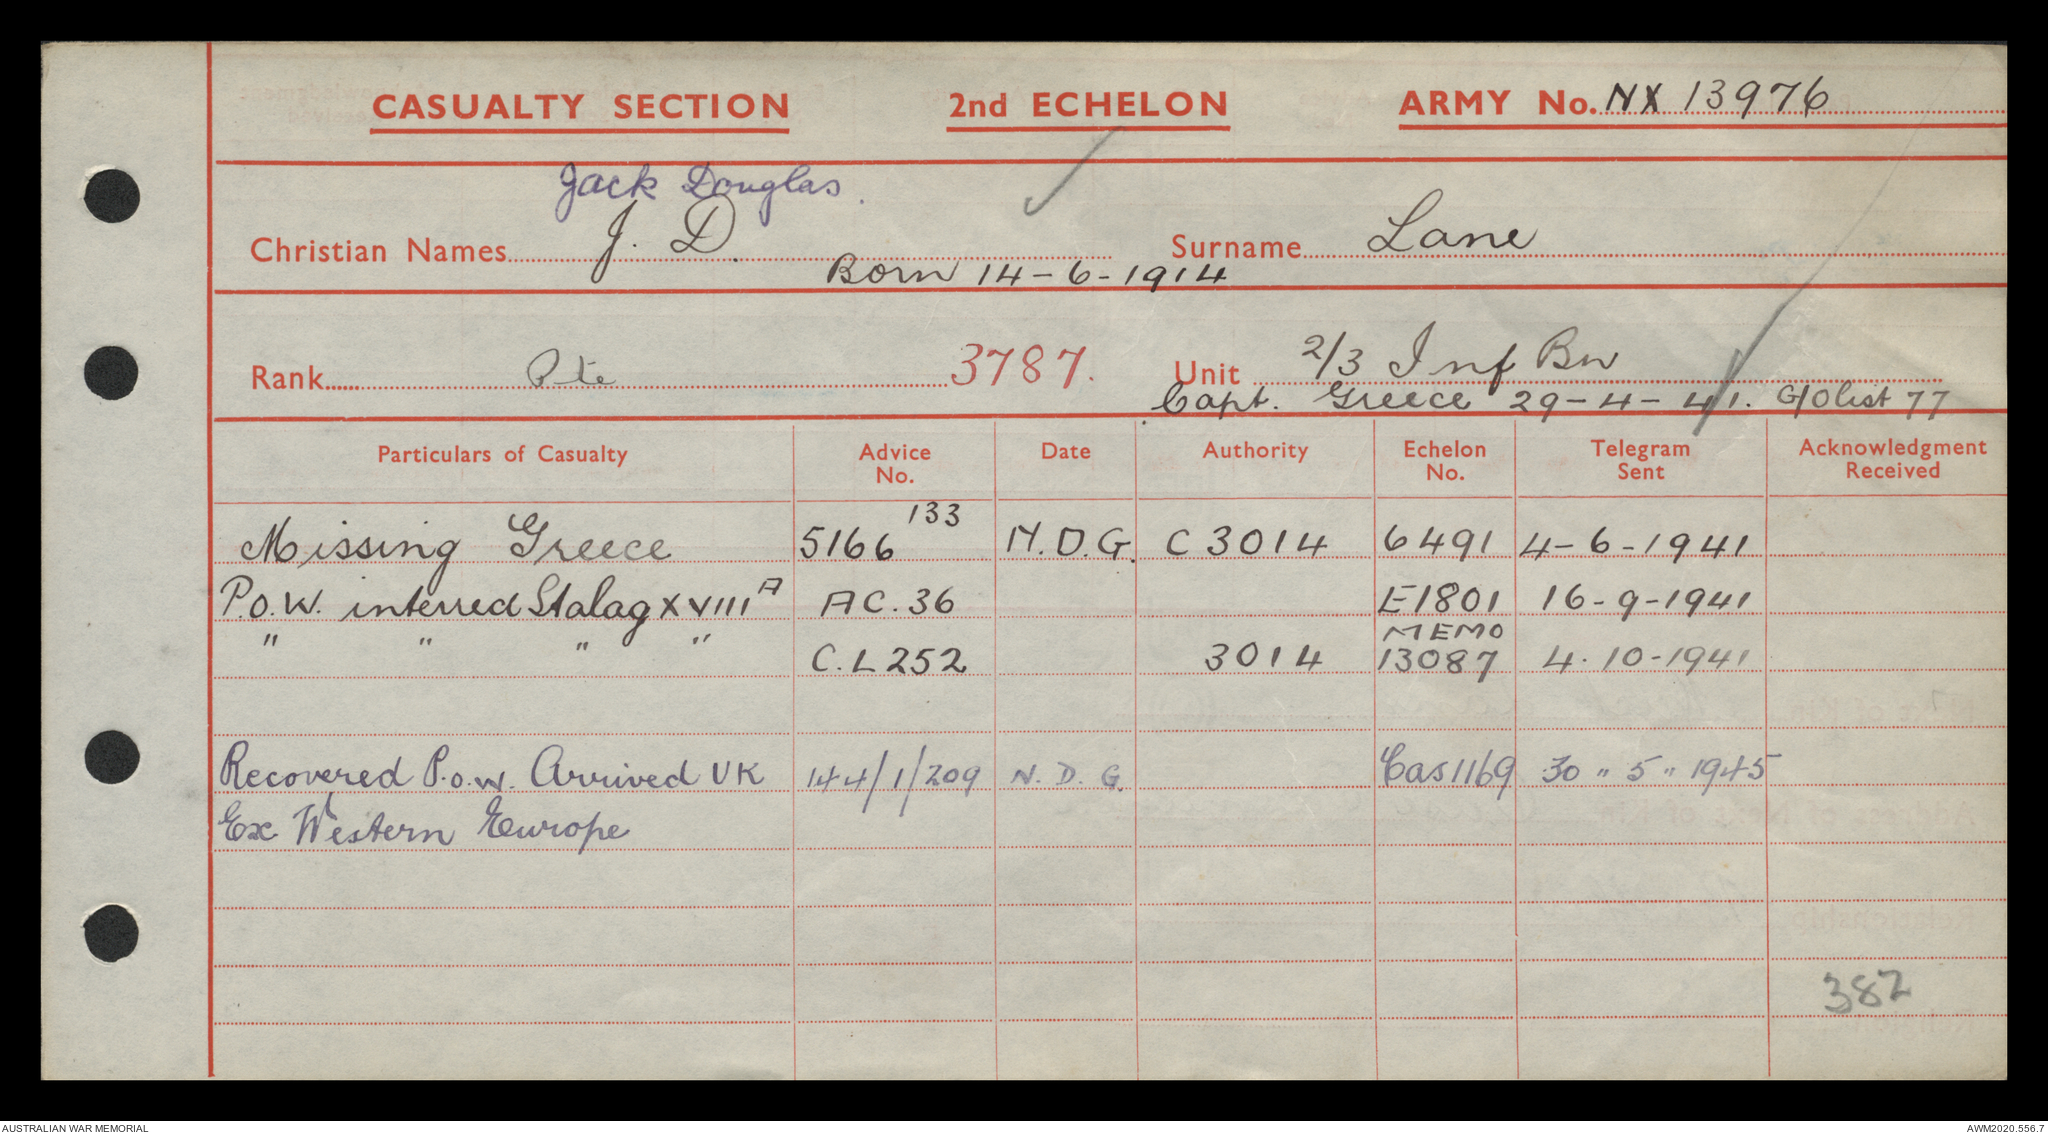 CASUALTY SECTION 2nd ECHELON ARMY No. NX 13976
Jack Douglas.
Christian Names J. D. Surname Lane
Born 14-6-1914
Rank Pte 3787. Unit 2/3 Inf Bn
Capt. Greece 29-4-41. G/O list 77
Particulars of Casualty Advice No. Date Authority Echelon No. Telegram Sent Acknowledgment Received
133
Missing Greece 5166 N.D.G. C 3014 6491 4-6-1941
P.O.W. interred Stalag XVIII A AC. 36 E1801 16-9-1941
" " " " C.L 252 3014 MEMO 13087 4.10-1941
Recovered P.O.W. Arrived UK 144/1/209 N. D. G. Cas1169 30 " 5 " 1945
Ex Western Europe
382
AUSTRALIAN WAR MEMORIAL AWM2020.556.7